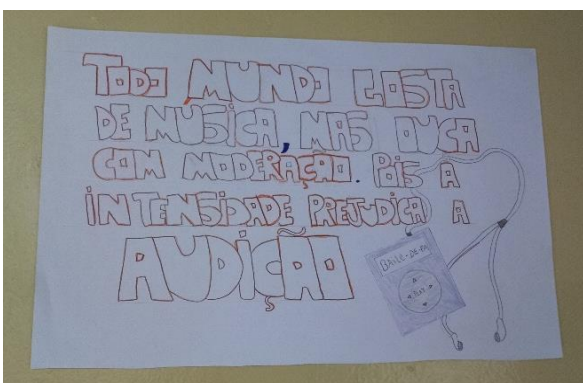 TODO MUNDO GOSTA
DE MUSICA, MAS OUÇA
COM MODERAÇÃO. POIS A
INTENSIDADE PREJUDICA A
AUDIÇÃO